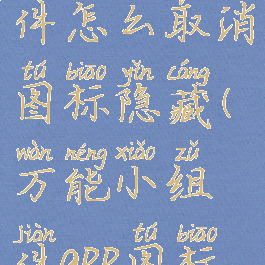 件怎么取消
tú biāo yǐn cáng
图标隐藏(
wàn néng xiǎo zǔ
万能小组
jiàn tú biāo
件app图标